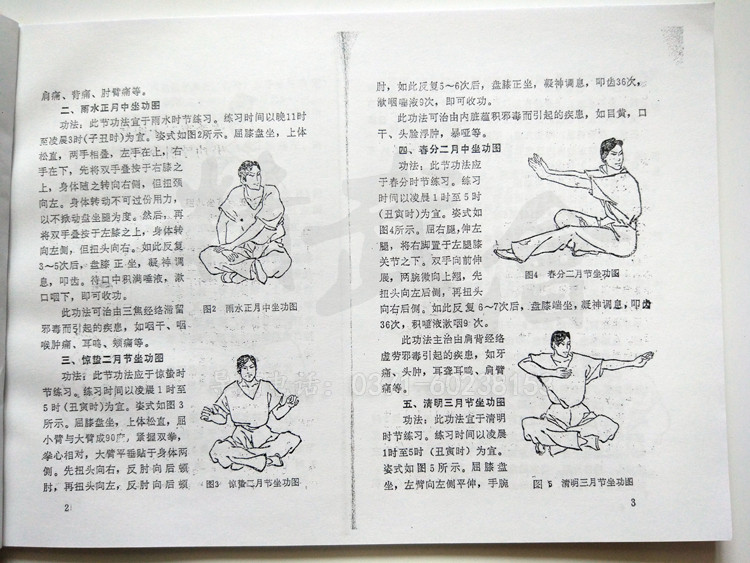 肩痛、背痛、肘臂痛等。
二、雨水正月中坐功图
功法：此节功法宜于雨水时节练习。练习时间以晚11时
至凌晨3时(子丑时)为宜。姿式如图2所示。屈膝盘坐，上体
松直，两手相叠，左手在上，右
手在下，先将双手叠按于右膝之
上，身体随之转向右侧，但扭颈
向左。身体转动不可过份用力，
以不掀动盘坐腿为度。然后，再
将双手叠按于左膝之上，身体转
向左侧，但扭头向右。如此反复
3～5次后，盘膝正坐，凝神调
息，叩齿。待口中积满唾液，漱
口咽下，即可收功。
此功法可治由三焦经络滞留
邪毒而引起的疾患，如咽干、咽
喉肿痛、耳鸣、颊痛等。
图2 雨水正月中坐功图
三、惊蛰二月节坐功图
功法：此节功法应于惊蛰时
节练习。练习时间以凌晨1时至
5时(丑寅时)为宜。姿式如图3
所示。屈膝盘坐，上体松直，屈
小臂与大臂成90度，紧握双拳，
拳心相对，大臂平垂贴于身体两
侧。先扭头向右，反肘向后顿
肘，再扭头向左，反肘向后顿
图3 惊蛰二月节坐功图
2
肘，如此反复5～6次后，盘膝正坐，凝神调息，叩齿36次，
漱咽唾液9次，即可收功。
此功法可治由内脏蕴积邪毒而引起的疾患，如目黄，口
干、头脸浮肿，暴哑等。
四、春分二月中坐功图
功法：此节功法应
于春分时节练习。练习
时间以凌晨1时至5时
(丑寅时)为宜。姿式如
图4所示。屈右腿，伸左
腿，将右脚置于左腿膝
关节之下。双手向前伸
展，两腕微向上翘，先
扭头向左后侧，再扭头
向右后侧。如此反复6～7次后，盘膝端坐，凝神调息，叩齿
36次，积唾液漱咽9次。
图4 春分二月节坐功图
此功法主治由肩背经络
虚劳邪毒引起的疾患，如牙
痛、头肿，耳聋耳鸣、肩臂
痛等。
五、清明三月节坐功图
功法：此功法宜于清明
时节练习。练习时间以凌晨
1时至5时(丑寅时)为宜。
姿式如图5所示。屈膝盘
坐，左臂向左侧平伸，手腕
图5 清明三月节坐功图
3